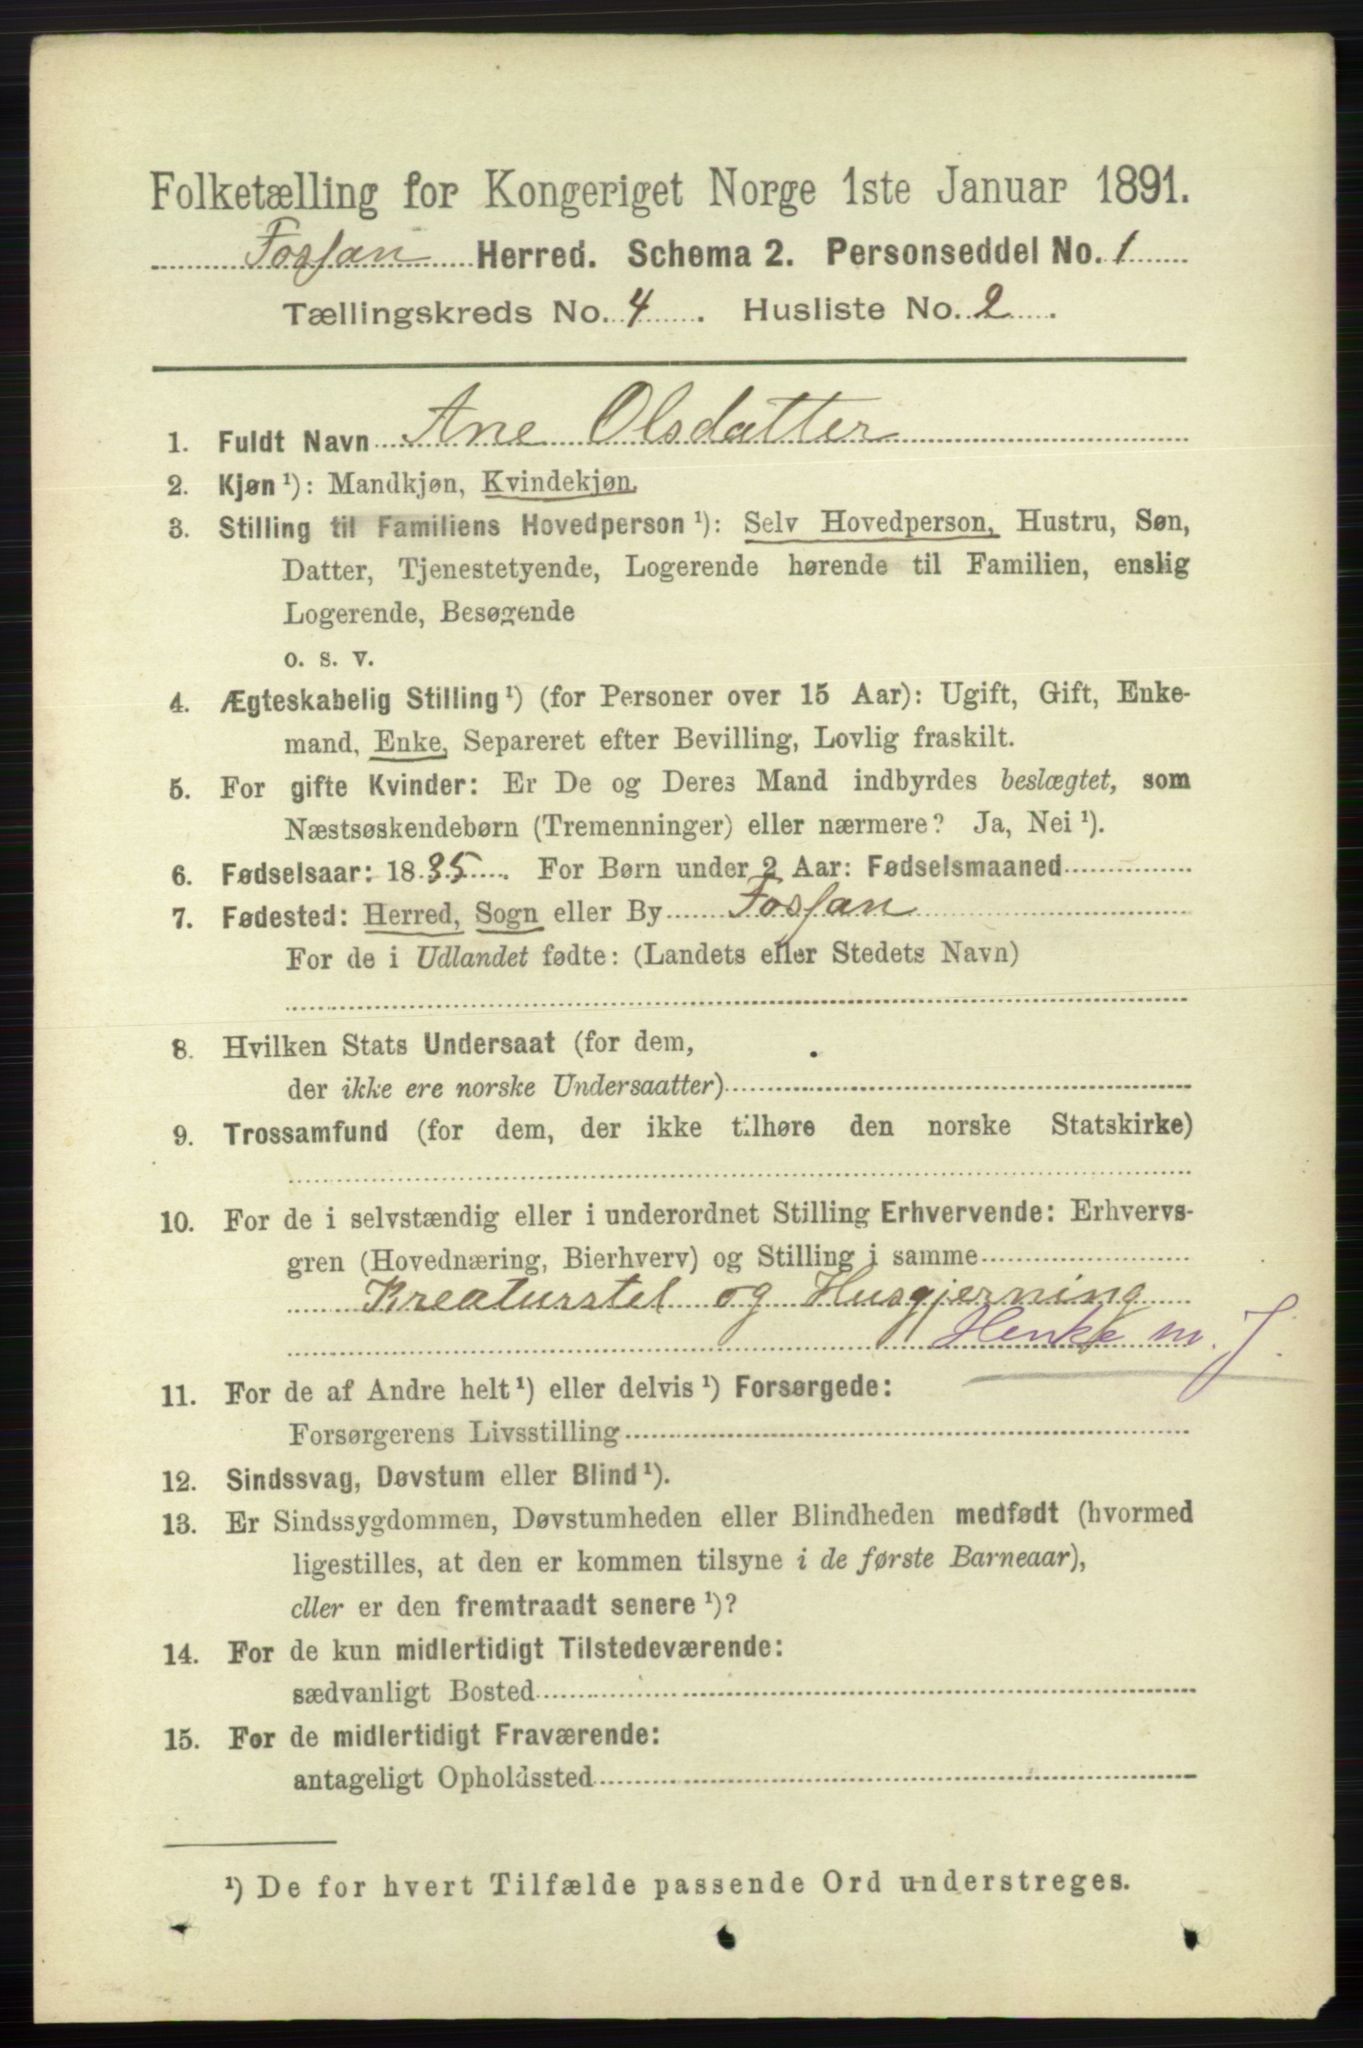 Folketælling for Kongeriget Norge 1ste Januar 1891.
Fosfan Herred. Schema 2. Personseddel No. 1
Tællingskreds No. 4 . Husliste No. 2 .
1. Fuldt Navn Ane Olsdatter
2. Kjøn¹): Mandkjøn, Kvindekjøn.
3. Stilling til Familiens Hovedperson¹): Selv Hovedperson, Hustru, Søn,
Datter, Tjenestetyende, Logerende hørende til Familien, enslig
Logerende, Besøgende
o. s. v.
4. Ægteskabelig Stilling¹) (for Personer over 15 Aar): Ugift, Gift, Enke-
mand, Enke, Separeret efter Bevilling, Lovlig fraskilt.
5. For gifte Kvinder: Er De og Deres Mand indbyrdes beslægtet, som
Næstsøskendebørn (Tremenninger) eller nærmere? Ja, Nei¹).
6. Fødselsaar: 1835 . For Børn under 2 Aar: Fødselsmaaned
7. Fødested: Herred, Sogn eller By Fosfan
For de i Udlandet fødte: (Landets eller Stedets Navn)
8. Hvilken Stats Undersaat (for dem,
der ikke ere norske Undersaatter)
9. Trossamfund (for dem, der ikke tilhøre den norske Statskirke)
10. For de i selvstændig eller i underordnet Stilling Erhvervende: Erhvervs-
gren (Hovednæring, Bierhverv) og Stilling i samme
Kreaturstel og Husgjerning
m. J.
11. For de af Andre helt¹) eller delvis¹) Forsørgede:
Forsørgerens Livsstilling
12. Sindssvag, Døvstum eller Blind¹).
13. Er Sindssygdommen, Døvstumheden eller Blindheden medfødt (hvormed
ligestilles, at den er kommen tilsyne i de første Barneaar),
eller er den fremtraadt senere¹)?
14. For de kun midlertidigt Tilstedeværende:
sædvanligt Bosted
15. For de midlertidigt Fraværende:
antageligt Opholdssted
¹) De for hvert Tilfælde passende Ord understreges.